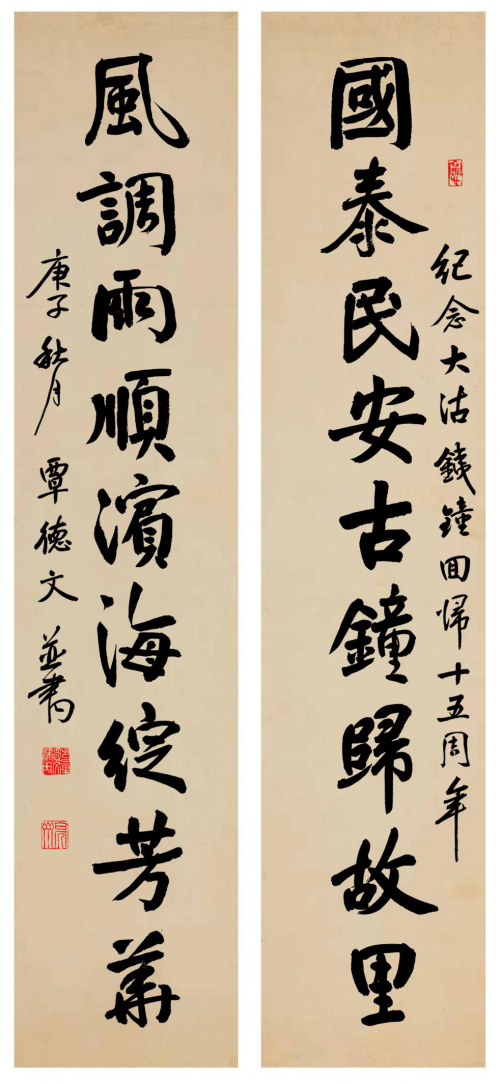 紀念大沽鐵鐘回歸十五周年
國泰民安古鐘歸故里
風調雨順濱海綻芳華
庚子秋月 覃德文 並書